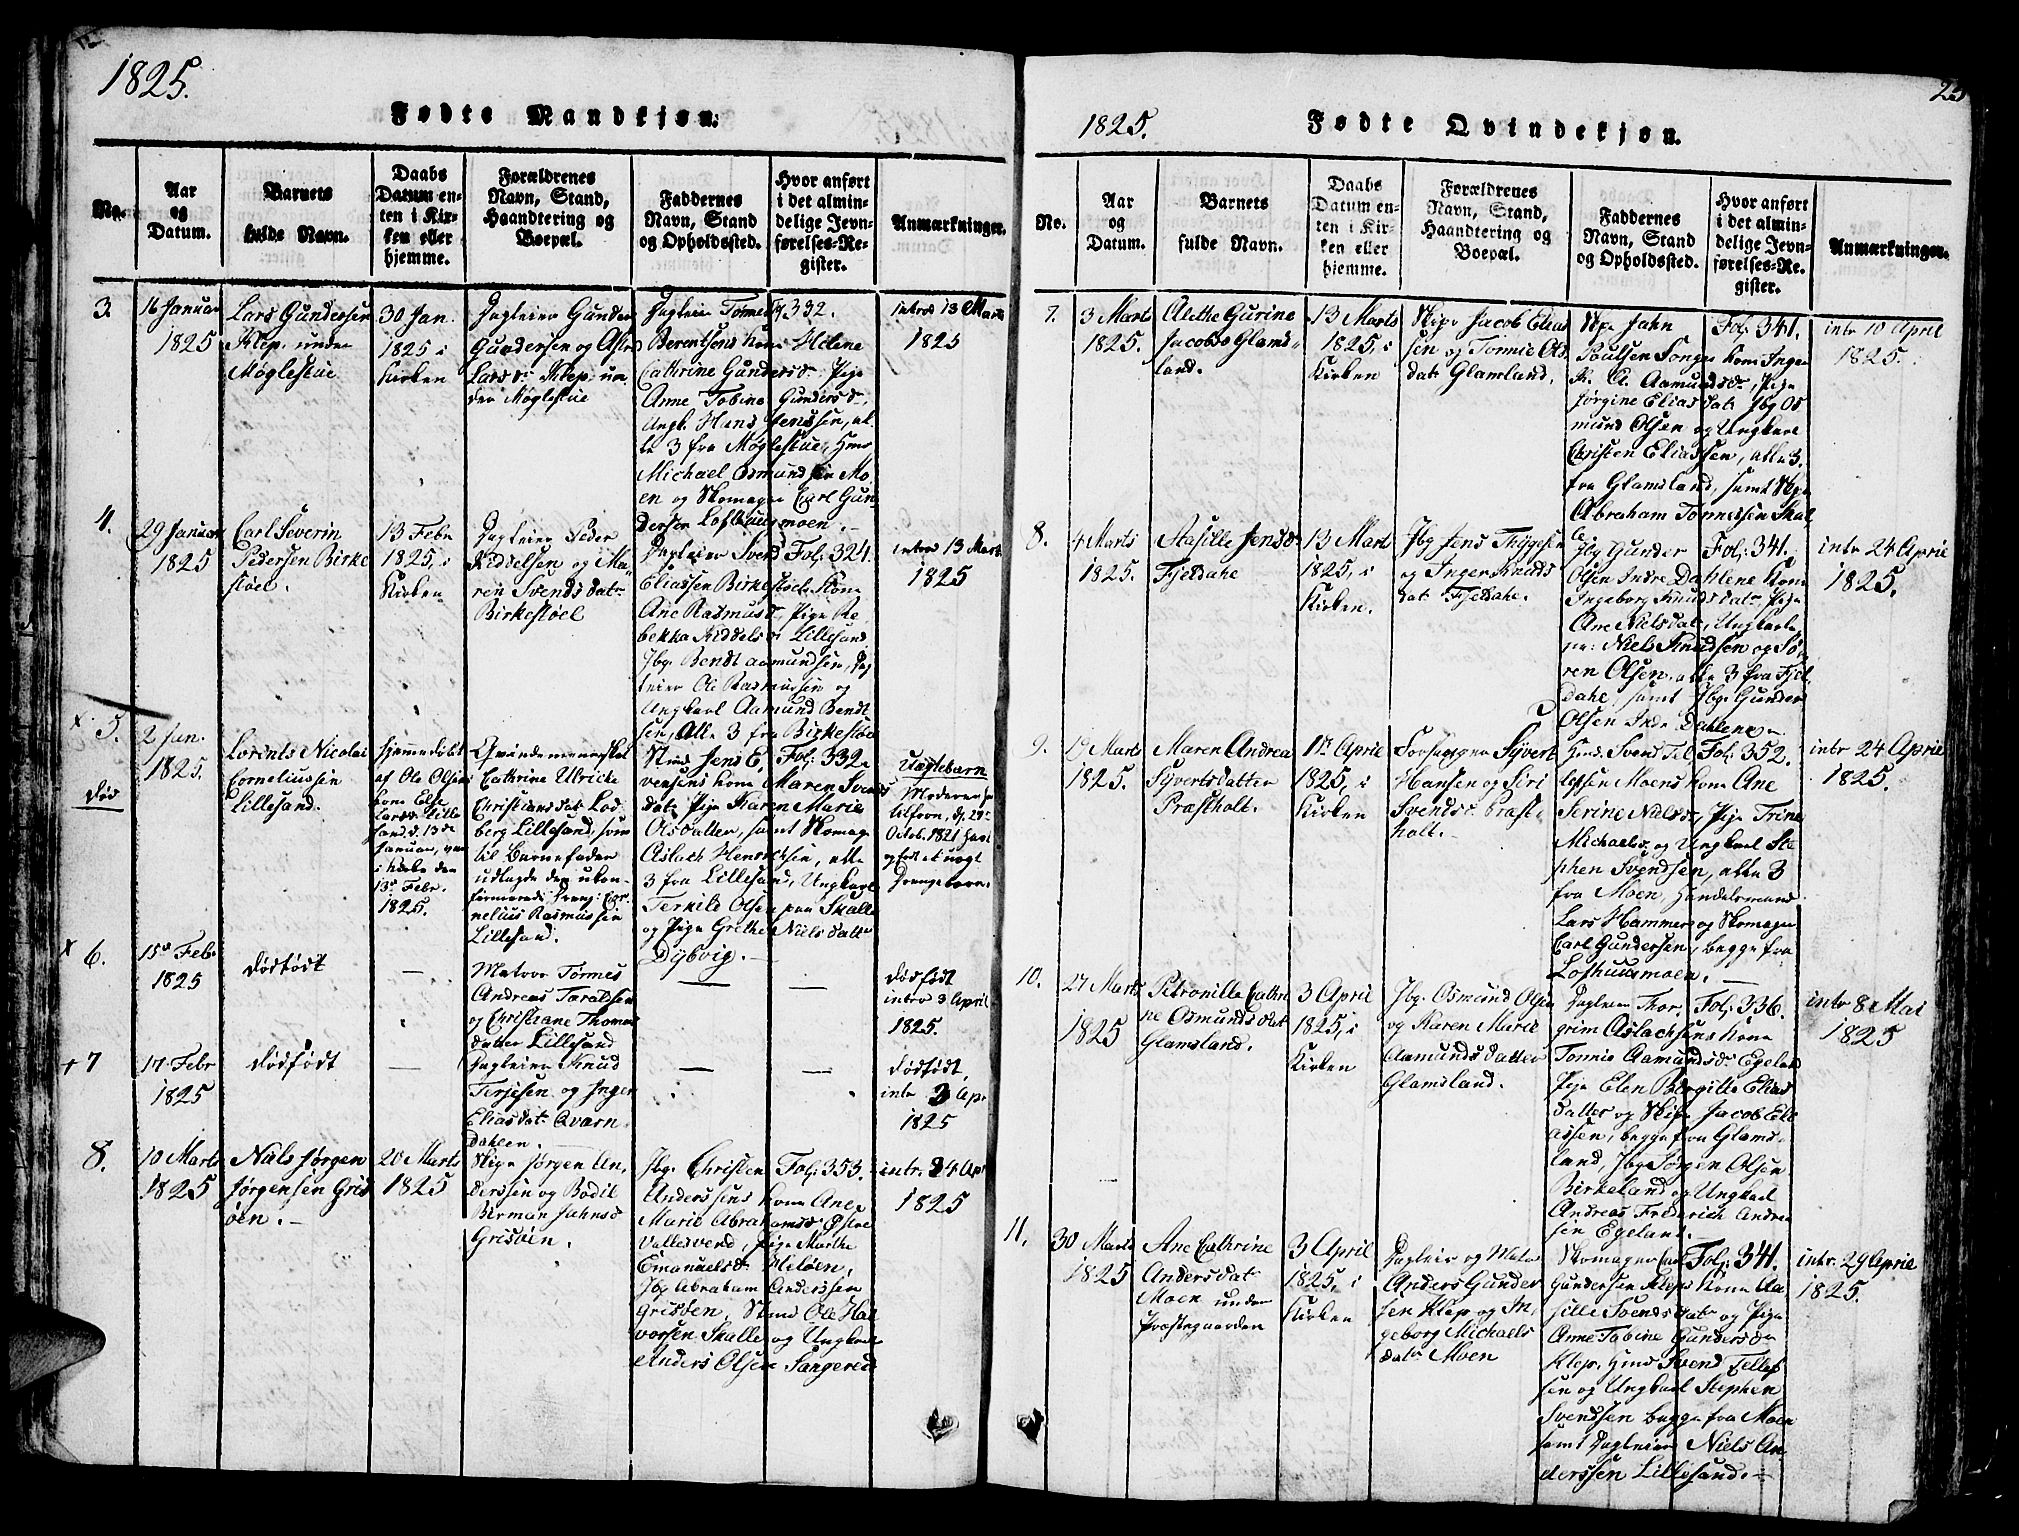 1825.
Fødte Mandkjøn.
No.
Aar
og
Datum.
Barnets
fulde Navn.
Daabs
Datum en-
ten i Kir-
ken eller
hjemme.
Forældrenes
Navn, Stand,
Haandtering og
Boepæl.
Faddernes
Navn, Stand
og Opholdssted.
Hvor anført
i det almin-
delige Jevn-
førelses-Re-
gister.
Anmærkninger.
3.
16 Januar
1825
Lars Gundersen
Klep. under
Møglestue
30 Jan.
1825 i
Kirken
Gunder
Gundersen og
Lars Klep. un
der Møglestue
Tønnes
Berentsens kone Helene
Cathrine Gundersdr. Pige
Anne Tobine Gundersdr.
Ungk. Hans Jenssen, al
le 3 fra Møglestue, Huus
Michael Osmundsen Mo
en og Skomager Carl Gun
dersen Lofthuusmoen.
332.
intro 13 Marts
1825
4.
29 Januar
1825
Carl Severin
Pedersen Birke
støel.
13 Febr
1825, i
Kirken
Peder
Keddelsen og Ma
ren Svendsdatr
Birkestøel
Svend
Eliassen Birkestøel Kone
Ane Rasmusd. Pige Re
bekka Keddelsdr Lillesand
Jbg. Bendt Aamundsen,
Ole Rasmussen og
Ungkarl Aamund Bendt
sen, alle 3 fra Birkestøe
Fol: 324.
intro 13 Mart
1825
x 5.
død
2 Jan.
1825.
Lorents Nicolai
Corneliussen
Lillesand.
hjemmedøbt
af Ole Olsens
kone Else
Larsdr Lille
sand d. 13de
Januar, var
i kirke den
13de Febr.
1825.
Qvindemennesket
Cathrine Ulricke
Christiansdatr Lod
berg Lillesand, som
til Barnefader
udlagde den ukon-
firmerede Dreng: Cor
nelius Rasmussen
Lillesand.
Jens E
vensens kone Maren Svends
datr Pige Karen Marie
Olsdatter, samt Skomager
Aslach Henrichsen, alle
3 fra Lillesand, Ungkarl
Terkild Olsen paa Skalle
og Pige Grethe Nielsdatter
Dybvig.
Fol: 332
Uægtebarn
Moderen
tilforn, d. 29de
Octob. 1821
født et uægt
Drengebarn.
x 6.
15de Feb.
1825
dødfødt
—
Matros Tønnes
Andreas Taraldsen
og Christiane Thomas
datter Lillesand
—
—
dødfødt
intr 3 April
1825.
+ 7
17 Febr
1825
dødfødt
—
Knud
Terjesen og Inger
Eliasdatr Qvarn
dahlen.
—
—
dødfødt,
intr 3 Apr
1825
8.
10 Marts
1825
Niels Jørgen
Jørgensen Gris
øen.
20 Marts
1825
Skipr Jørgen An
derssen og Bodil
Birman Jahnsd
Grisøen.
Jbg. Christen
Anderssens kone Ane
Marie Abrahamsdr Østre
Vallesverd, Pige Marthe
Emanuelsdr Heløen,
Jbg Abraham Anderssen
Grisøen, Ole Hal
vorsen Skalle og Ungkarl
Anders Olsen Sangereid
Fol: 353.
intr. 24 Apr
1825
25
1825.
Fødte Qvindekjøn.
No.
Aar
og
Datum.
Barnets
fulde Navn.
Daabs
Datum en-
ten i Kir-
ken eller
hjemme.
Forældrenes
Navn, Stand,
Haandtering og
Boepæl.
Faddernes
Navn, Stand
og Opholdssted.
Hvor anført
i det almin-
delige Jevn-
førelses-Re-
gister.
Anmærkninger.
7.
3 Marts
1825.
Alethe Gurine
Jacobsdr Glams-
land.
13 Marts
1825, i
Kirken
Skipr Jacob Elias
sen og Tønnie Ols
datr Glamsland.
Skipr Jahn
Poulsen Songe kone Inger
K. A. Aamundsdr, Pige
Jørgine Eliasdatr Jbg Os
mund Olsen og Ungkarl
Christen Eliassen, alle 3.
fra Glamsland, samt Skipr
Abraham Tønnessen Skal
le
Fol: 341.
intr 10 April
1825.
8.
4 Marts
1825.
Aasille Jensdr
Fjeldahe
13 Mart
1825, i
Kirken.
Jbg Jens Thygesen
og Inger Knuds
datr Fjeldahe.
Jbg Gunder
Olsen Indre Dahlene Kone
Ingeborg Knudsdatr, Pige
Ane Nielsdatr, Ungkarle
ne: Niels Knudsen og Sø
ren Olsen, alle 3 fra Fjel
dahe samt Jbg. Gunder
Olsen Indr Dahlene
Fol: 341.
intr 24 April
1825.
9.
19 Marts
1825.
Maren Andrea
Syvertsdatter
Præstholt.
17 April
1825, i
Kirken
Syvert
Hansen og Siri
Svendsdr Præst
holt.
Svend Tel
lefsen Moens kone Ane
Serine Nielsdr, Pige Trine
Michaelsdr og Ungkarl Ste
phen Svendsen, alle 3
fra Moen, Handelsmand
Lars Hammer og Skomager
Carl Gundersen, begge fra
Lofthuusmoen.
Fol: 352.
intr 24 April
1825.
10.
27 Marts
1825
Petronille Cathri
ne Osmundsdatr
Glamsland.
3 April
1825, i
Kirken
Jbg. Osmund Olsen
og Karen Marie
Aamundsdatter
Glamsland.
Thor
grim Aslachsens kone
Tonnie Aamundsdr Egeland
Pige Elen Birgitte Elias
datter og Skipr Jacob Eli
assen, begge fra Glams-
land, Jbg Jørgen Olsen
Birkeland og Ungkarl
Andreas Frederich Andre
sen Egeland.
Fol: 336.
intr 8 Mai
1825
11.
30 Marts
1825
Ane Cathrine
Andersdatr
Moen under
Præstegaarden
3 April
1825, i
Kirken
og Matros
Anders Gunder
sen Klep og In
geborg Michaels
datr Moen
Skomager Carl
Gundersen Kleps kone Aa
sille Svendsdatr og Pige
Anne Tobine Gundersdr
Klep, Huus Svend Tellef
sen og Ungkarl Stephen
Svendsen begge fra Moen
samt Niels An-
derssen Lillesand.
Fol: 341.
intr. 29 April
1825.